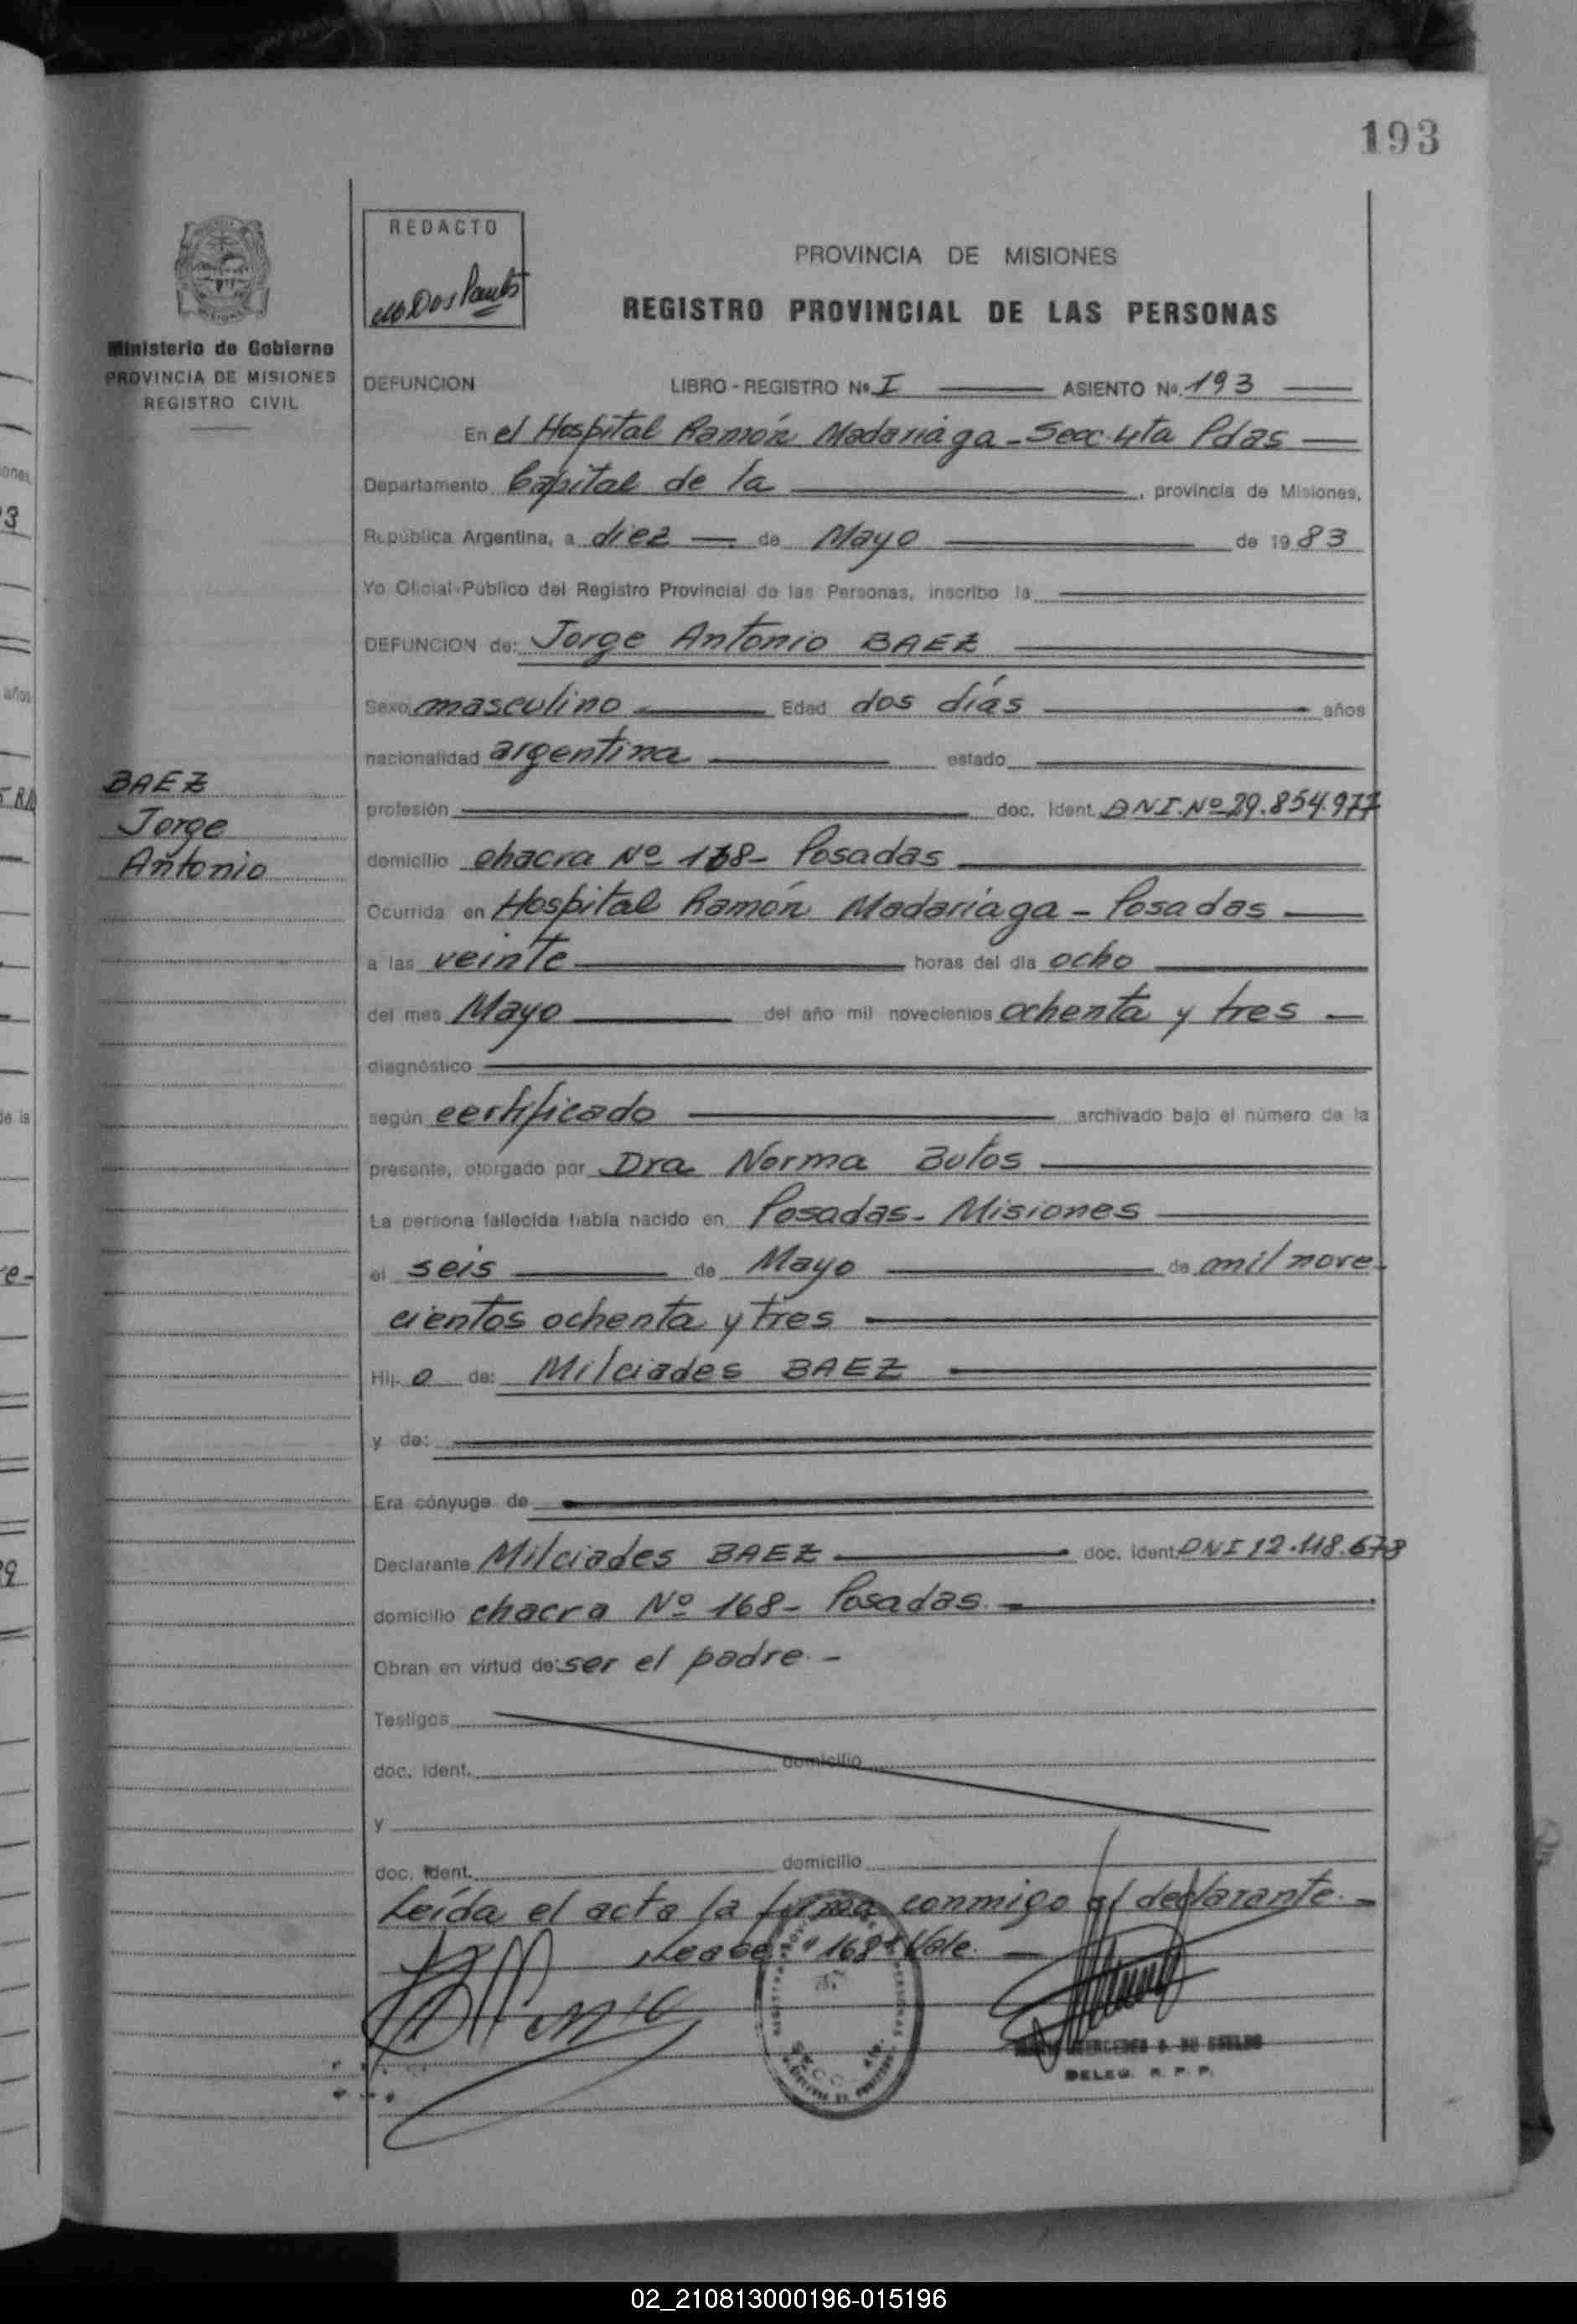 193
REDACTO
PROVINCIA DE MISIONES
REGISTRO PROVINCIAL DE LAS PERSONAS
Ministerio de Gobierno
PROVINCIA DE MISIONES
REGISTRO CIVIL
DEFUNCION LIBRO - REGISTRO No. I ASIENTO No. 193
En el Hospital Ramón Madariaga - Secc. 4ta Pdas
Departamento Capital de la , provincia de Misiones,
República Argentina, a diez de Mayo de 1983
Yo Oficial Público del Registro Provincial de las Personas, inscribo la
DEFUNCION de: Jorge Antonio BAEZ
Sexo masculino Edad dos días años
nacionalidad argentina estado
BAEZ
Jorge
Antonio
profesión doc. Ident. DNI. Nº 29.854.977
domicilio chacra Nº 168 - Posadas
Ocurrida en Hospital Ramón Madariaga - Posadas
a las veinte horas del día ocho
del mes Mayo del año mil novecientos ochenta y tres
diagnóstico
según certificado archivado bajo el número de la
presente, otorgado por Dra Norma Bulos
La persona fallecida había nacido en Posadas - Misiones
el seis de Mayo de mil nove-
cientos ochenta y tres
Hij o de: Milciades BAEZ
y de:
Era cónyuge de
Declarante Milciades BAEZ doc. Ident. DNI 12.118.678
domicilio chacra Nº 168 - Posadas.
Obran en virtud de: ser el padre. -
Testigos
doc. Ident. domicilio
y
doc. Ident. domicilio
Leída el acta la firma conmigo el declarante. -
Lease: "168" Vale.
DELEG. R. P. P.
02_210813000196-015196